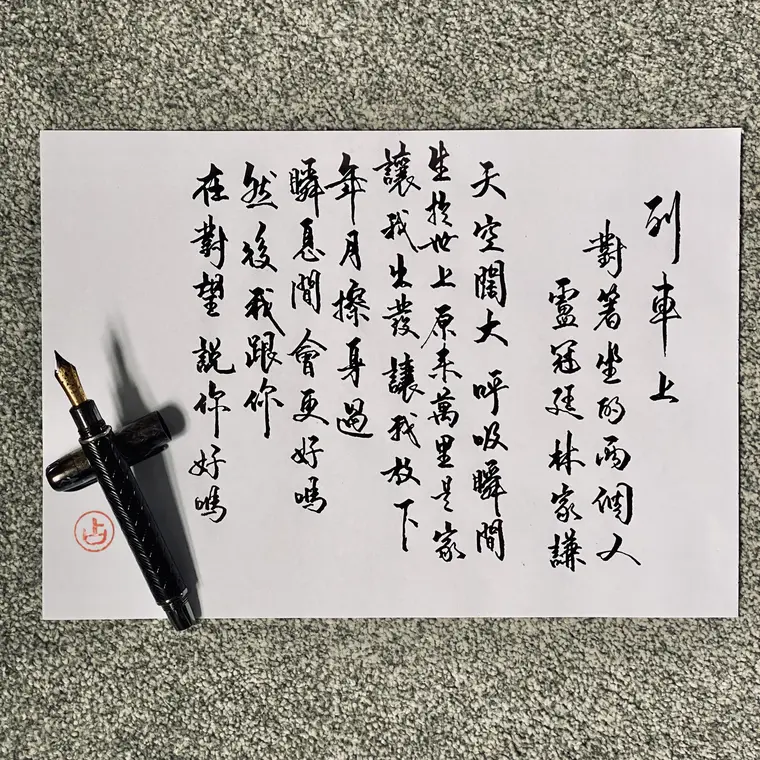 列車上
對著坐的兩個人
盧冠廷林家謙
天空闊大呼吸瞬間
生於世上原來萬里是家
讓我出發讓我放下
年月擦身過
瞬息間會更好嗎
然後我跟你
在對望說你好嗎
占